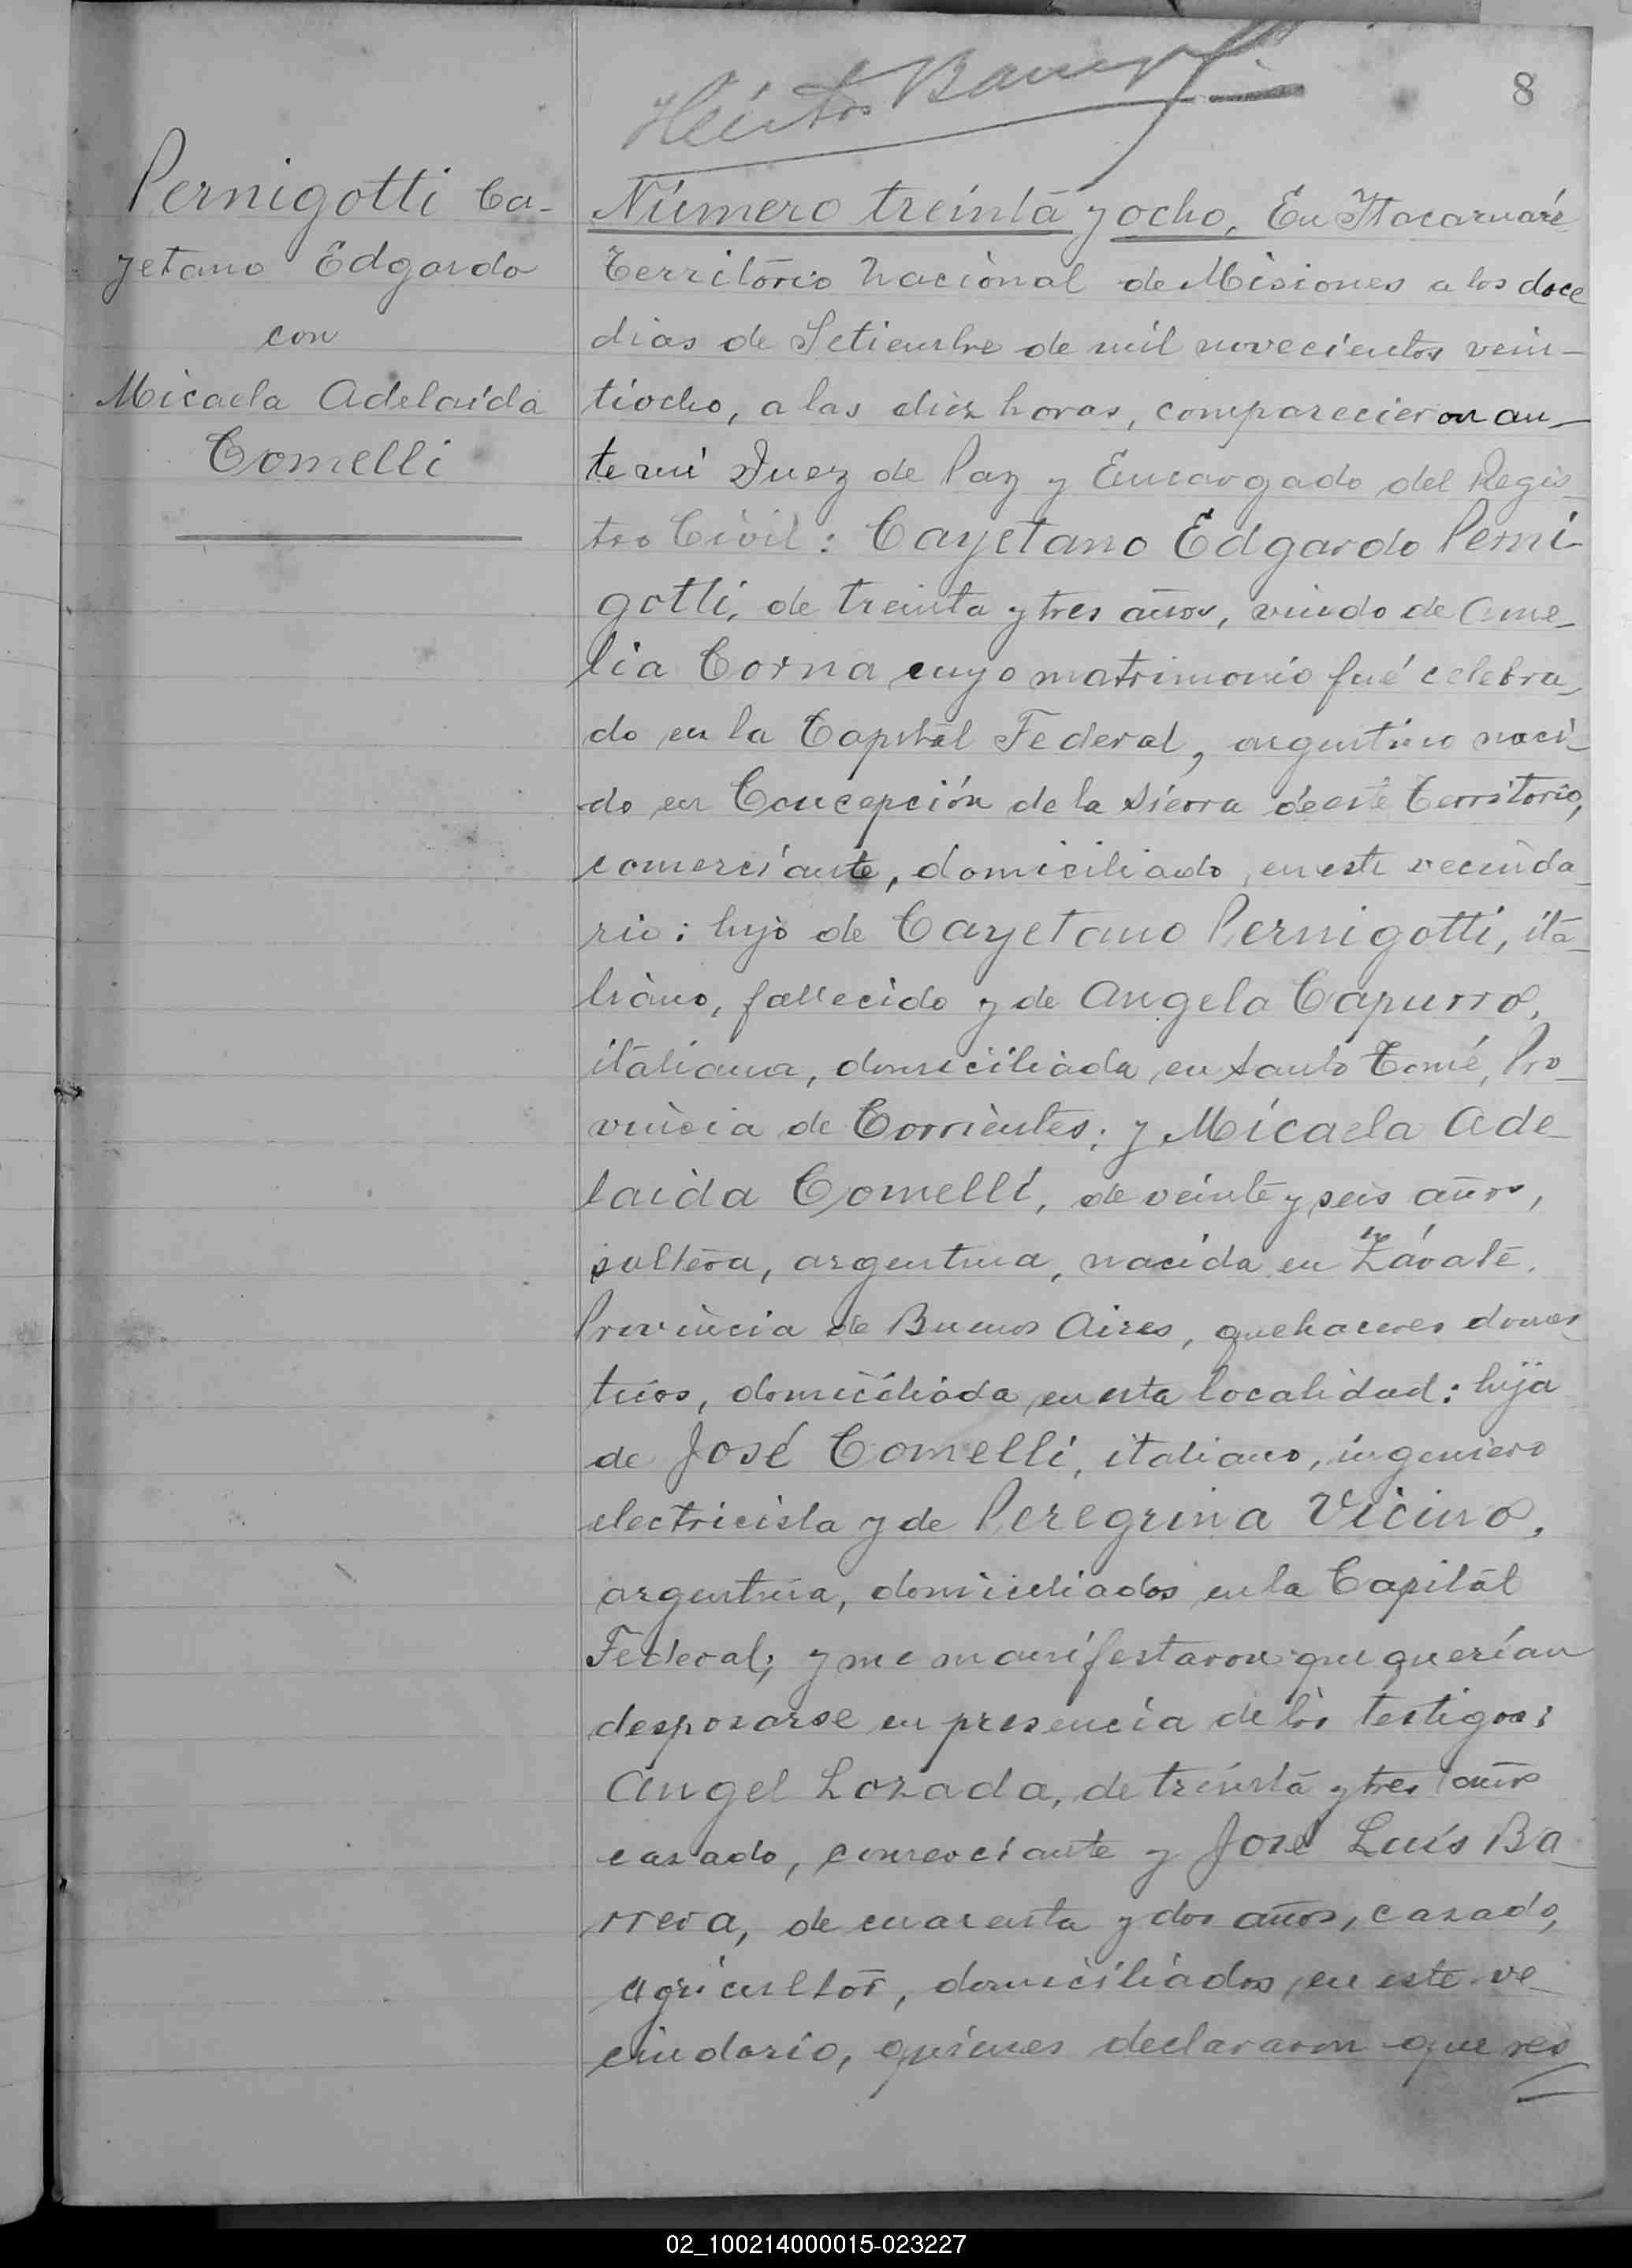 8
Pernigotti Ca-
yetano Edgardo
con
Micaela Adelaida
Comelli
Número treinta y ocho, En Itacaruaré
Territorio Nacional de Misiones a los doce
dias de Setiembre de mil novecientos vein-
tiocho, a las diez horas, comparecieron an-
te mi Juez de Paz y Encargado del Regis-
tro Civil: Cayetano Edgardo Perni-
gotti, de treinta y tres años, viudo de Ame-
lia Corna cuyo matrimonio fué celebra-
do en la Capital Federal, argentino naci-
do en Concepción de la Sierra de este Territorio,
comerciante, domiciliado, en este vecinda-
rio: hijo de Cayetano Pernigotti, ita-
liano, fallecido y de Angela Capurro,
italiana, domiciliada en Santo Tomé, Pro-
vincia de Corrientes: y Micaela Ade-
laida Comelli, de veinte y seis años,
soltera, argentina, nacida en Zárate,
Provincia de Buenos Aires, quehaceres domes-
ticos, domiciliada en esta localidad: hija
de José Comelli, italiano, ingeniero
electricista y de Peregrina Vicino,
argentina, domiciliados en la Capital
Federal; y me manifestaron que querían
desposarse en presencia de los testigos:
Angel Lozada, de treinta y tres años
casado, comerciante y José Luís Ba-
rrera, de cuarenta y dos años, casado,
agricultor, domiciliados en este ve-
cindario, quienes declararon que res
02_100214000015-023227